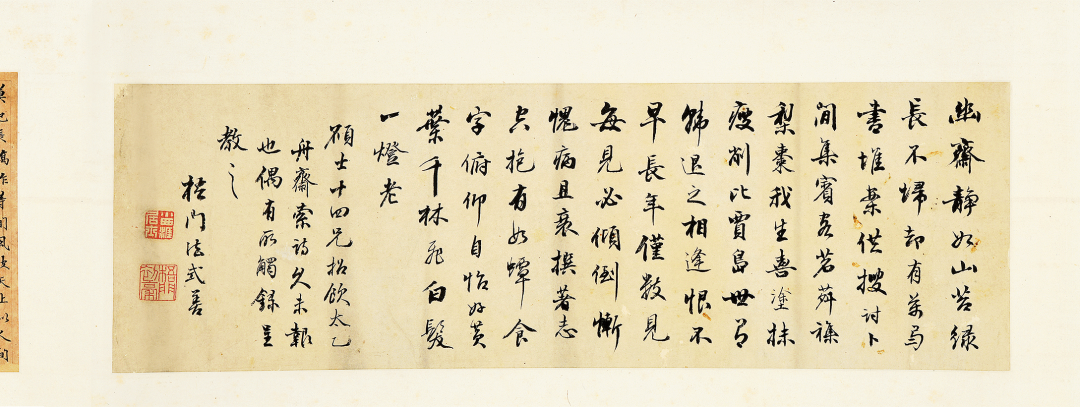 幽齋靜如山苔綠
長不埽却有萬卷
書堆案供搜討卜
間集賓客茗荈襍
梨棗我生喜塗抹
瘦削比賈島世有
韓退之相逢恨不
早長年僅數見
每見必傾倒慚
愧病且衰撰著志
空抱有如蟫食
字俯仰自怡好黃
葉千林飛白髮
一燈老
碩士十四兄招飲太乙
舟齋索詩久未報
也偶有所觸錄呈
教之
梧門法式善
風波天上似人間